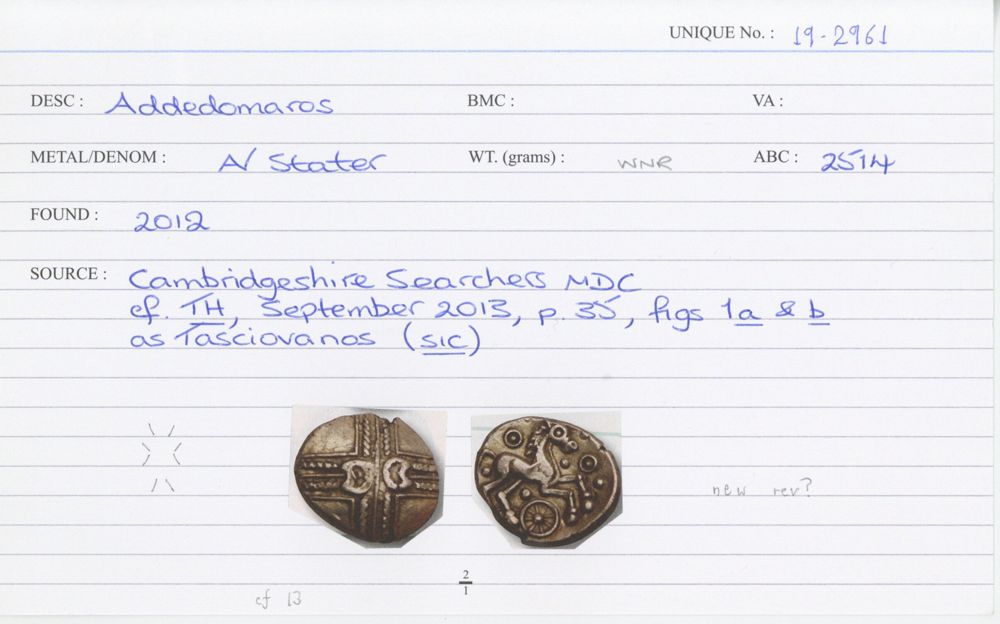 UNIQUE No. : 19-2961
DESC : Addedomaros BMC : VA :
METAL/DENOM : A/ Stater WT. (grams) : WNR ABC : 2514
FOUND : 2012
SOURCE : Cambridgeshire Searchers MDC
cf. TH, September 2013, p. 35, figs 1a & b
as Tasciovanos (sic)
new rev?
2
1
cf 13